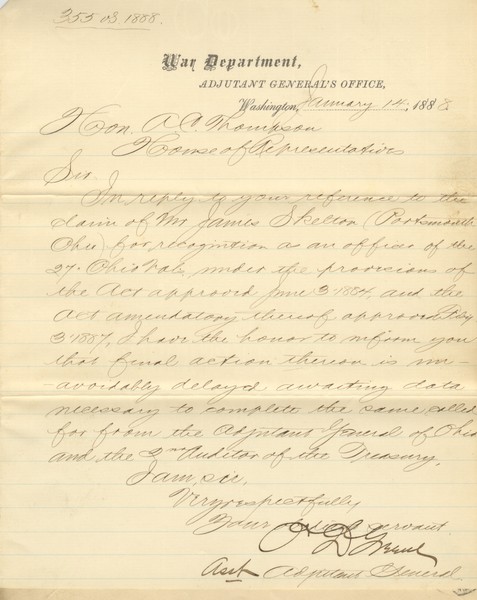 355 of 1888.
War Department,
ADJUTANT GENERAL'S OFFICE,
Washington, January 14, 1888
Hon. A. C. Thompson
House of Representatives
Sir.
In reply to your reference to the
claim of Mr James Skelton (Portsmouth
Ohio) for recognition as an officer of the
27. Ohio Vols, under the provisions of
the Act approved June 3-1884, and the
Act amendatory thereof approved Feby
3-1887, I have the honor to inform you
that final action thereon is un-
-avoidably delayed awaiting data
necessary to complete the same, called
for from the Adjutant General of Ohio
and the 2nd Auditor of the Treasury.
I am, sir,
Very respectfully
Your servant
Asst Adjutant General.